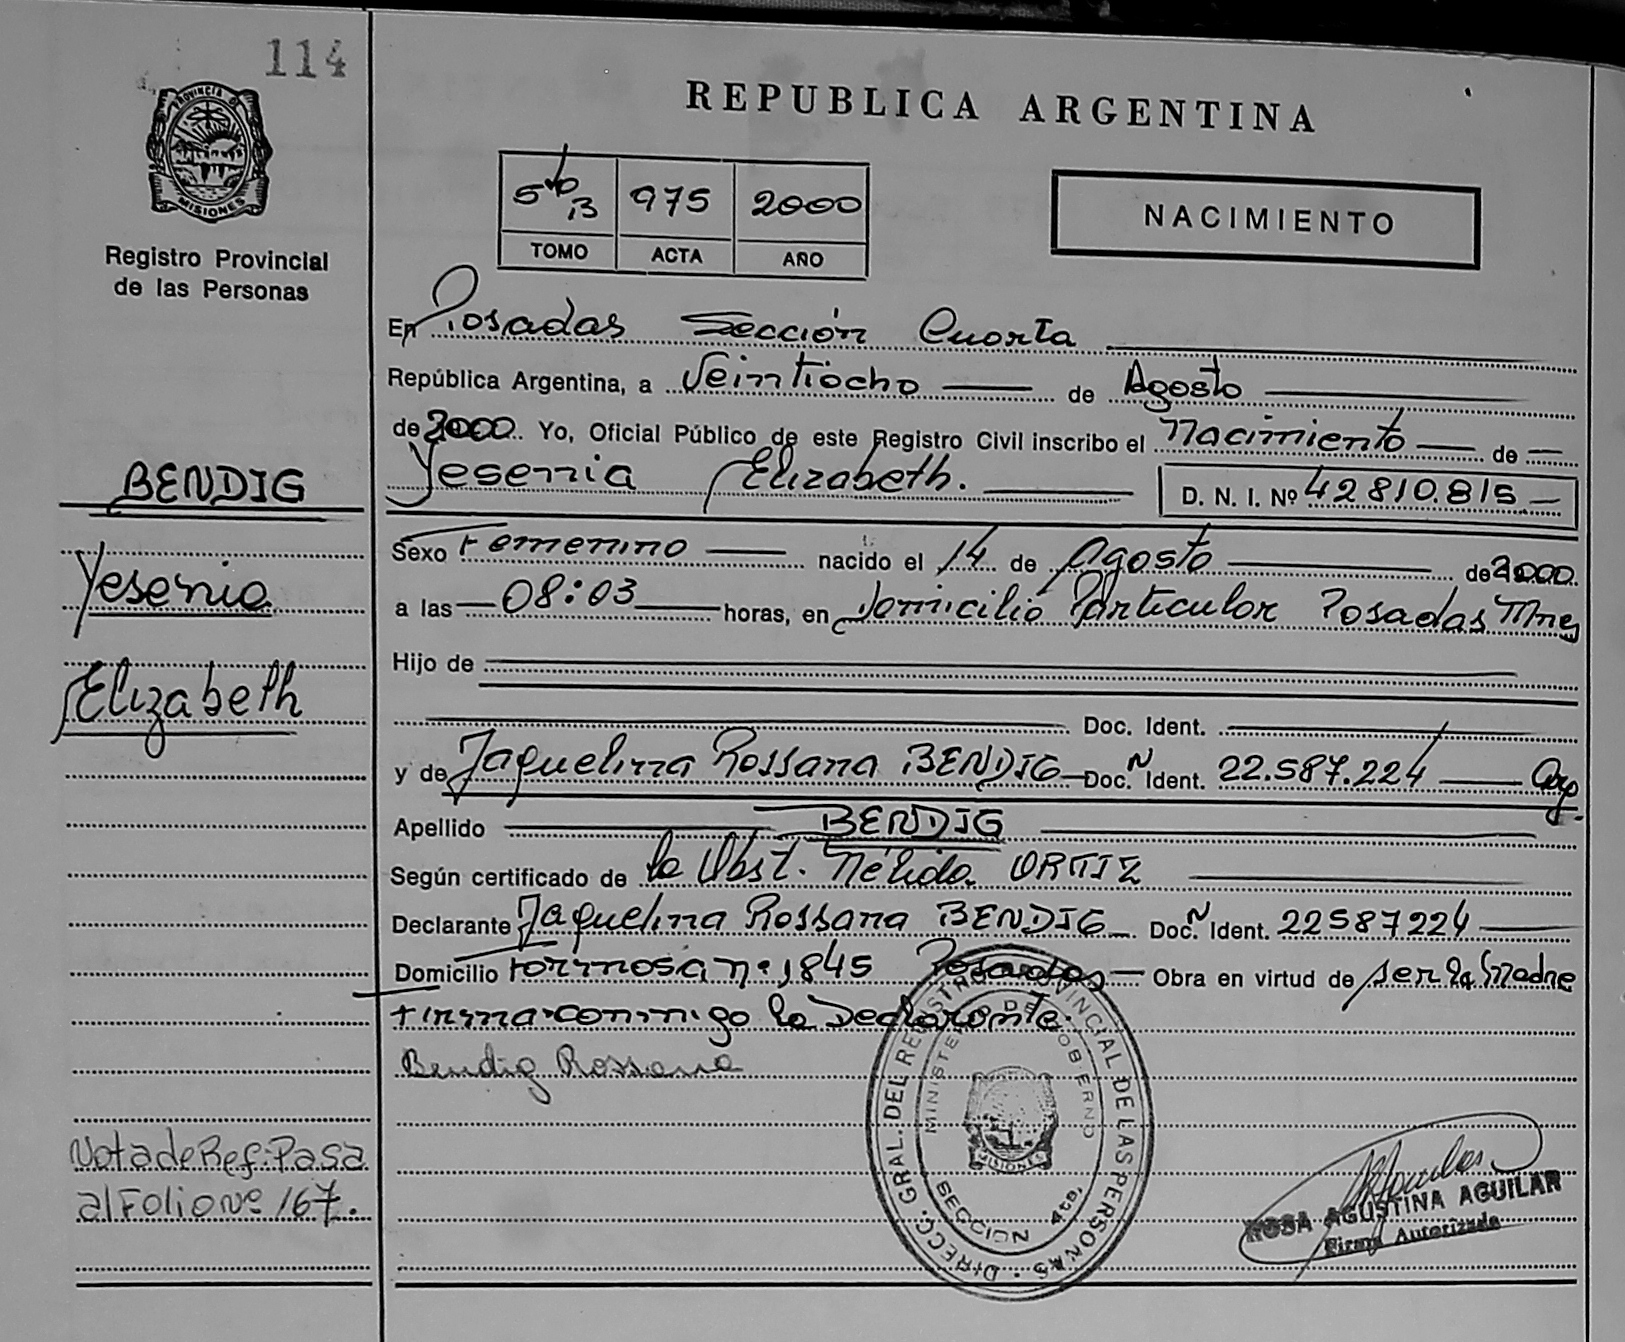 114
PROVINCIA DE
MISIONES
Registro Provincial
de las Personas
REPUBLICA ARGENTINA
5to B 975 2000
TOMO ACTA AÑO
NACIMIENTO
En Posadas Sección Cuarta
República Argentina, a Veintiocho de Agosto
de 2000 Yo, Oficial Público de este Registro Civil inscribo el Nacimiento de
Yesenia Elizabeth. D. N. I. Nº 42810.815
Sexo Femenino nacido el 14 de Agosto de 2000.
a las 08:03 horas, en domicilio Particular Posadas Mnes
Hijo de
Doc. Ident.
y de Jaquelina Rossana BENDIG Doc. N Ident. 22.587.224 Arg.
Apellido BENDIG
Según certificado de la Obst. Nélida ORTIZ
Declarante Jaquelina Rossana BENDIG Doc. N Ident. 22587224
Domicilio Formosa nº 1845 Posadas Obra en virtud de ser la Madre
firma conmigo la Declarante.
Bendig Rossana
BENDIG
Yesenia
Elizabeth
Nota de Ref: Pasa
al Folio Nº 167.
DIRECC. GRAL. DEL REGISTRO PROVINCIAL DE LAS PERSONAS
MINISTERIO DE GOBIERNO
MISIONES
SECCION 4ta.
ROSA AGUSTINA AGUILAR
Firma Autorizada